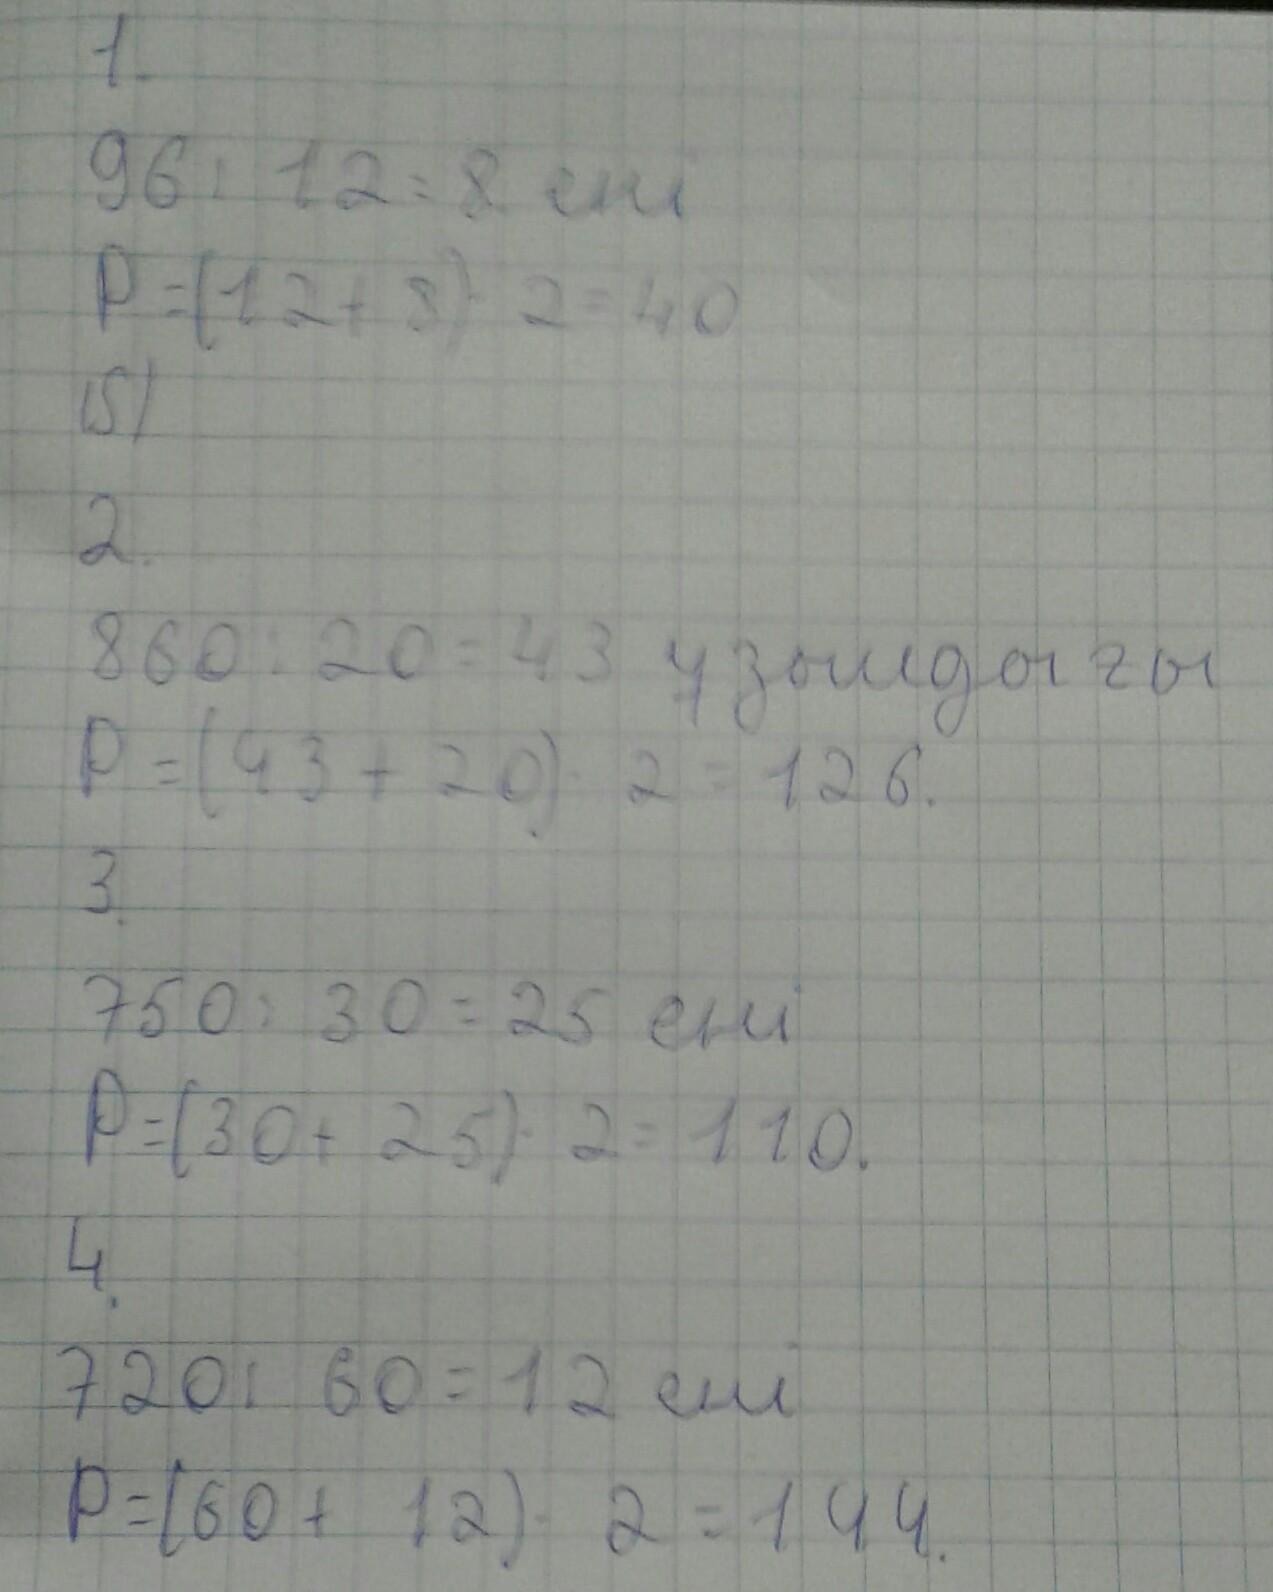 1.
96 : 12 = 8 ені
P = (12 + 8) · 2 = 40
(5)
2.
860 : 20 = 43 ұзындығы
P = (43 + 20) · 2 = 126.
3.
750 : 30 = 25 ені
P = (30 + 25) · 2 = 110.
4.
720 : 60 = 12 ені
P = (60 + 12) · 2 = 144.